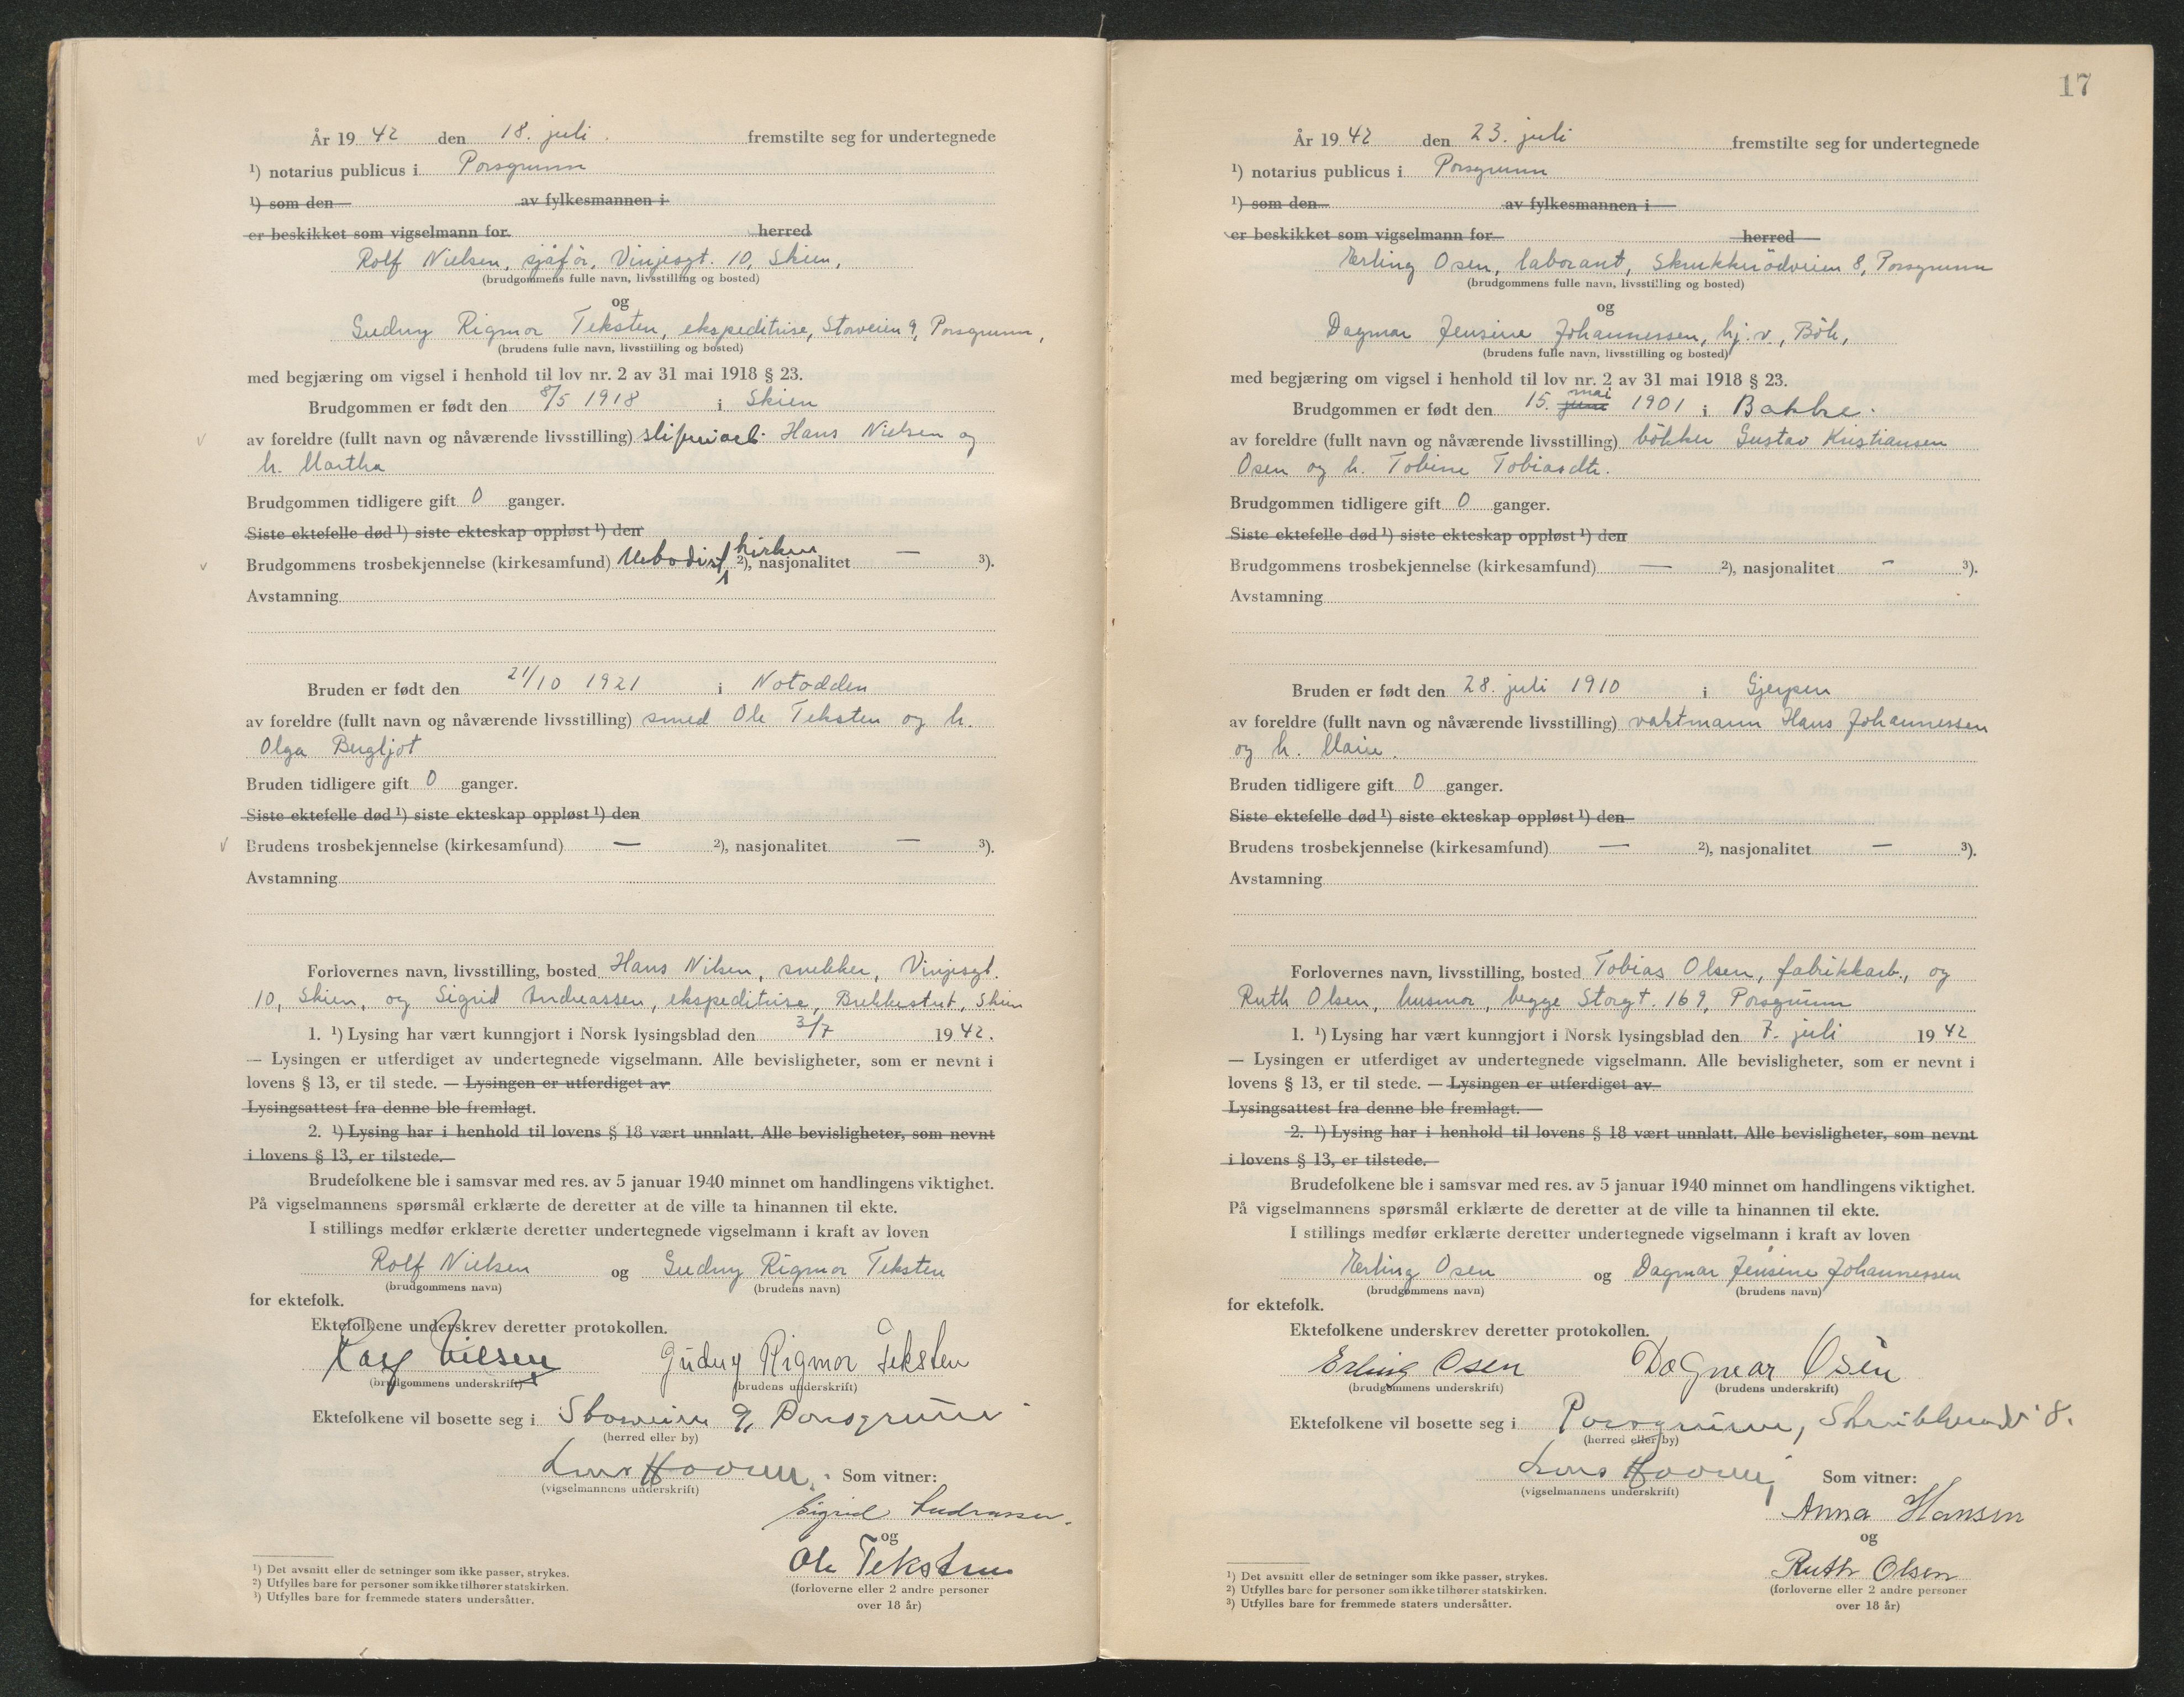 År 19 42 den 18. juli. fremstilte seg for undertegnede
¹) notarius publicus i Porsgrunn
¹) som den av fylkesmannen i
er beskikket som vigselmann for herred
Rolf Nielsen, sjåfør, Vinjesgt. 10, Skien,
(brudgommens fulle navn, livsstilling og bosted)
og
Gudny Rigmor Teksten, ekspeditrise, Storveien 9, Porsgrunn,
(brudens fulle navn, livsstilling og bosted)
med begjæring om vigsel i henhold til lov nr. 2 av 31 mai 1918 § 23.
Brudgommen er født den 8/5 1918 i Skien
av foreldre (fullt navn og nåværende livsstilling) sliperiarb. Hans Nielsen og
h. Martha
Brudgommen tidligere gift 0 ganger.
Siste ektefelle død ¹) siste ekteskap oppløst ¹) den
Brudgommens trosbekjennelse (kirkesamfund) Metodist kirken ²), nasjonalitet — ³).
Avstamning
Bruden er født den 21/10 1921 i Notodden
av foreldre (fullt navn og nåværende livsstilling) smed Ole Teksten og h.
Olga Bergljot
Bruden tidligere gift 0 ganger.
Siste ektefelle død ¹) siste ekteskap oppløst ¹) den
Brudens trosbekjennelse (kirkesamfund) — ²), nasjonalitet — ³).
Avstamning
Forlovernes navn, livsstilling, bosted Hans Nilsen, snekker, Vinjesgt.
10, Skien, og Sigrid Andreassen, ekspeditrise, Brekkestut, Skien
1. ¹) Lysing har vært kunngjort i Norsk lysingsblad den 3/7 19 42.
— Lysingen er utferdiget av undertegnede vigselmann. Alle bevisligheter, som er nevnt i
lovens § 13, er til stede. — Lysingen er utferdiget av
Lysingsattest fra denne ble fremlagt.
2. ¹) Lysing har i henhold til lovens § 18 vært unnlatt. Alle bevisligheter, som nevnt
i lovens § 13, er tilstede.
Brudefolkene ble i samsvar med res. av 5 januar 1940 minnet om handlingens viktighet.
På vigselmannens spørsmål erklærte de deretter at de ville ta hinannen til ekte.
I stillings medfør erklærte deretter undertegnede vigselmann i kraft av loven
Rolf Nielsen og Gudny Rigmor Teksten
(brudgommens navn) (brudens navn)
for ektefolk.
Ektefolkene underskrev deretter protokollen.
Nielsen Gudny Rigmor Teksten
(brudgommens underskrift) (brudens underskrift)
Ektefolkene vil bosette seg i Storveien 9, Porsgrunn
(herred eller by)
Som vitner:
(vigselmannens underskrift)
Sigrid Andreassen.
og
Ole Teksten
(forloverne eller 2 andre personer
over 18 år)
¹) Det avsnitt eller de setninger som ikke passer, strykes.
²) Utfylles bare for personer som ikke tilhører statskirken.
³) Utfylles bare for fremmede staters undersåtter.
17
År 19 42 den 23. juli fremstilte seg for undertegnede
¹) notarius publicus i Porsgrunn
¹) som den av fylkesmannen i
er beskikket som vigselmann for herred
Erling Osen, laborant, Skrukkerødveien 8, Porsgrunn
(brudgommens fulle navn, livsstilling og bosted)
og
Dagmar Jensine Johannessen, hj. v., Böle,
(brudens fulle navn, livsstilling og bosted)
med begjæring om vigsel i henhold til lov nr. 2 av 31 mai 1918 § 23.
Brudgommen er født den 15. juni mai 1901 i Bakke.
av foreldre (fullt navn og nåværende livsstilling) bökker Gustav Kristiansen
Osen og h. Tobine Tobiasdtr.
Brudgommen tidligere gift 0 ganger.
Siste ektefelle død ¹) siste ekteskap oppløst ¹) den
Brudgommens trosbekjennelse (kirkesamfund) — ²), nasjonalitet - ³).
Avstamning
Bruden er født den 28. juli 1910 i Gjerpen
av foreldre (fullt navn og nåværende livsstilling) vaktmann Hans Johannessen
og h. Marie.
Bruden tidligere gift 0 ganger.
Siste ektefelle død ¹) siste ekteskap oppløst ¹) den
Brudens trosbekjennelse (kirkesamfund) — ²), nasjonalitet — ³).
Avstamning
Forlovernes navn, livsstilling, bosted Tobias Olsen, fabrikkarb., og
Ruth Olsen, husmor, begge Storgt. 169, Porsgrunn
1. ¹) Lysing har vært kunngjort i Norsk lysingsblad den 7. juli 19 42
— Lysingen er utferdiget av undertegnede vigselmann. Alle bevisligheter, som er nevnt i
lovens § 13, er til stede. — Lysingen er utferdiget av
Lysingsattest fra denne ble fremlagt.
2. ¹) Lysing har i henhold til lovens § 18 vært unnlatt. Alle bevisligheter, som nevnt
i lovens § 13, er tilstede.
Brudefolkene ble i samsvar med res. av 5 januar 1940 minnet om handlingens viktighet.
På vigselmannens spørsmål erklærte de deretter at de ville ta hinannen til ekte.
I stillings medfør erklærte deretter undertegnede vigselmann i kraft av loven
Erling Osen og Dagmar Jensine Johannessen
(brudgommens navn) (brudens navn)
for ektefolk.
Ektefolkene underskrev deretter protokollen.
Erling Osen Dagmar Osen
(brudgommens underskrift) (brudens underskrift)
Ektefolkene vil bosette seg i Porsgrunn, 8.
(herred eller by)
Som vitner:
(vigselmannens underskrift)
Anna Hansen
og
Ruth Olsen
(forloverne eller 2 andre personer
over 18 år)
¹) Det avsnitt eller de setninger som ikke passer, strykes.
²) Utfylles bare for personer som ikke tilhører statskirken.
³) Utfylles bare for fremmede staters undersåtter.